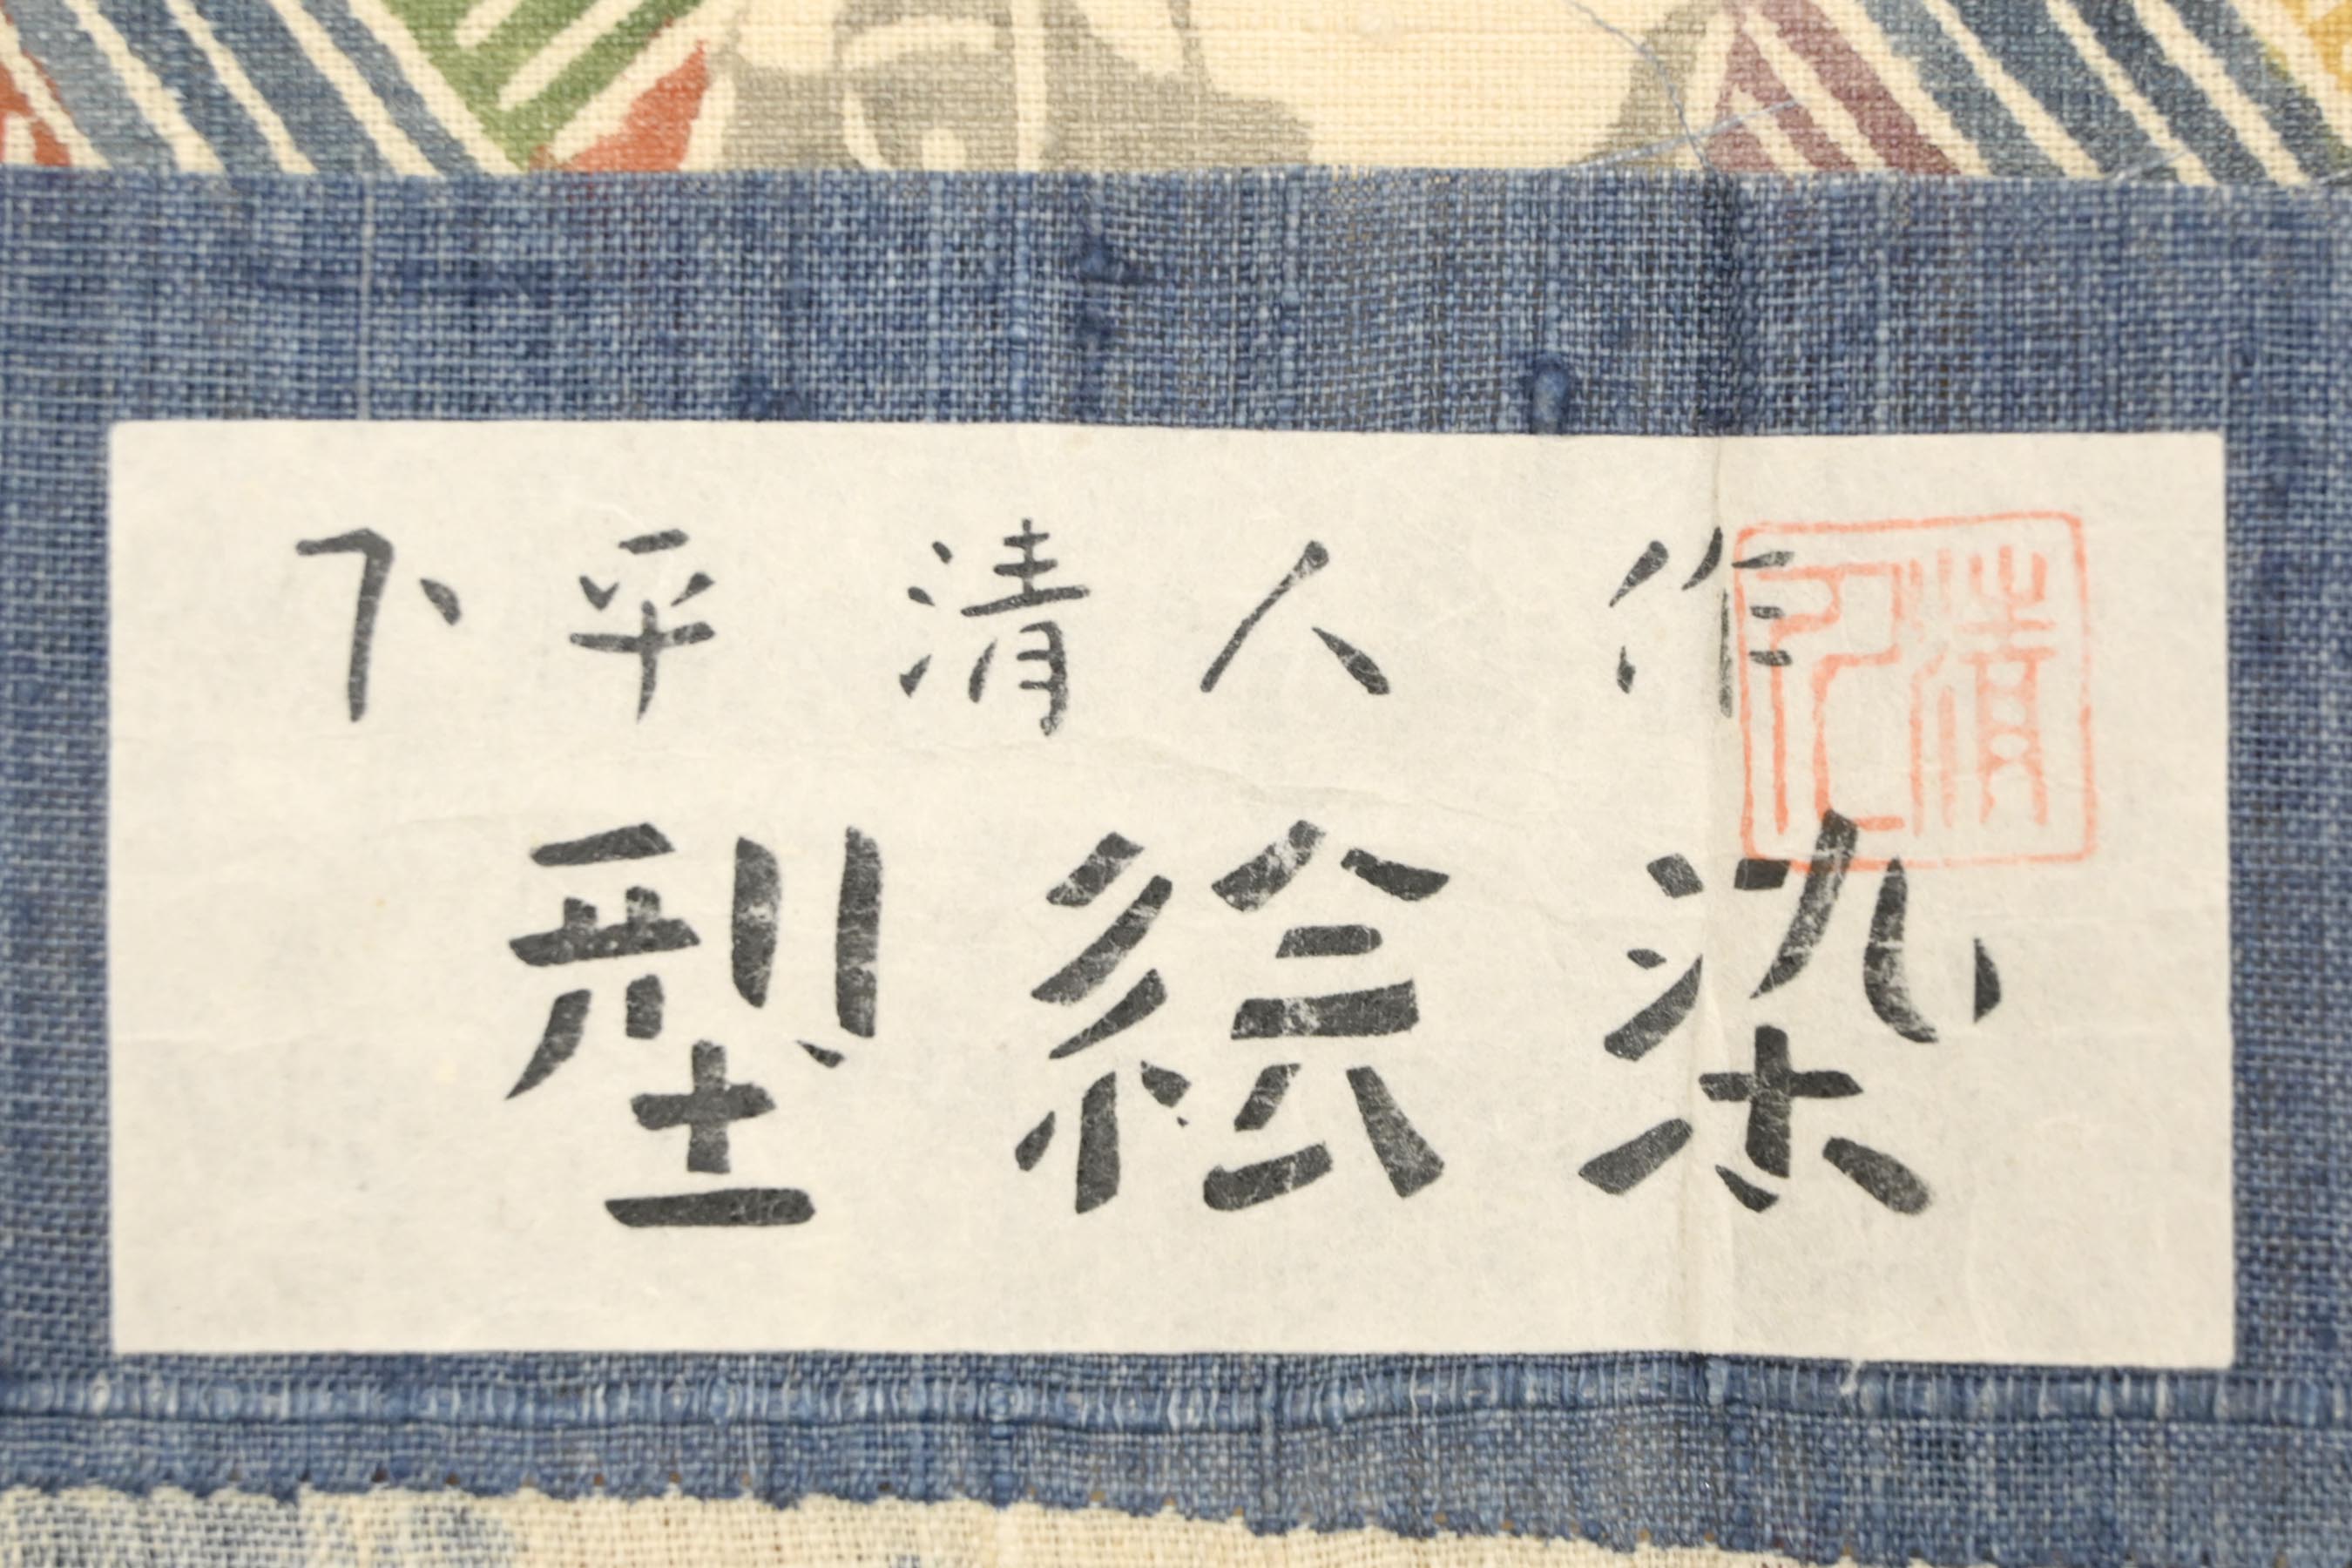 下平清人作
型絵染
清